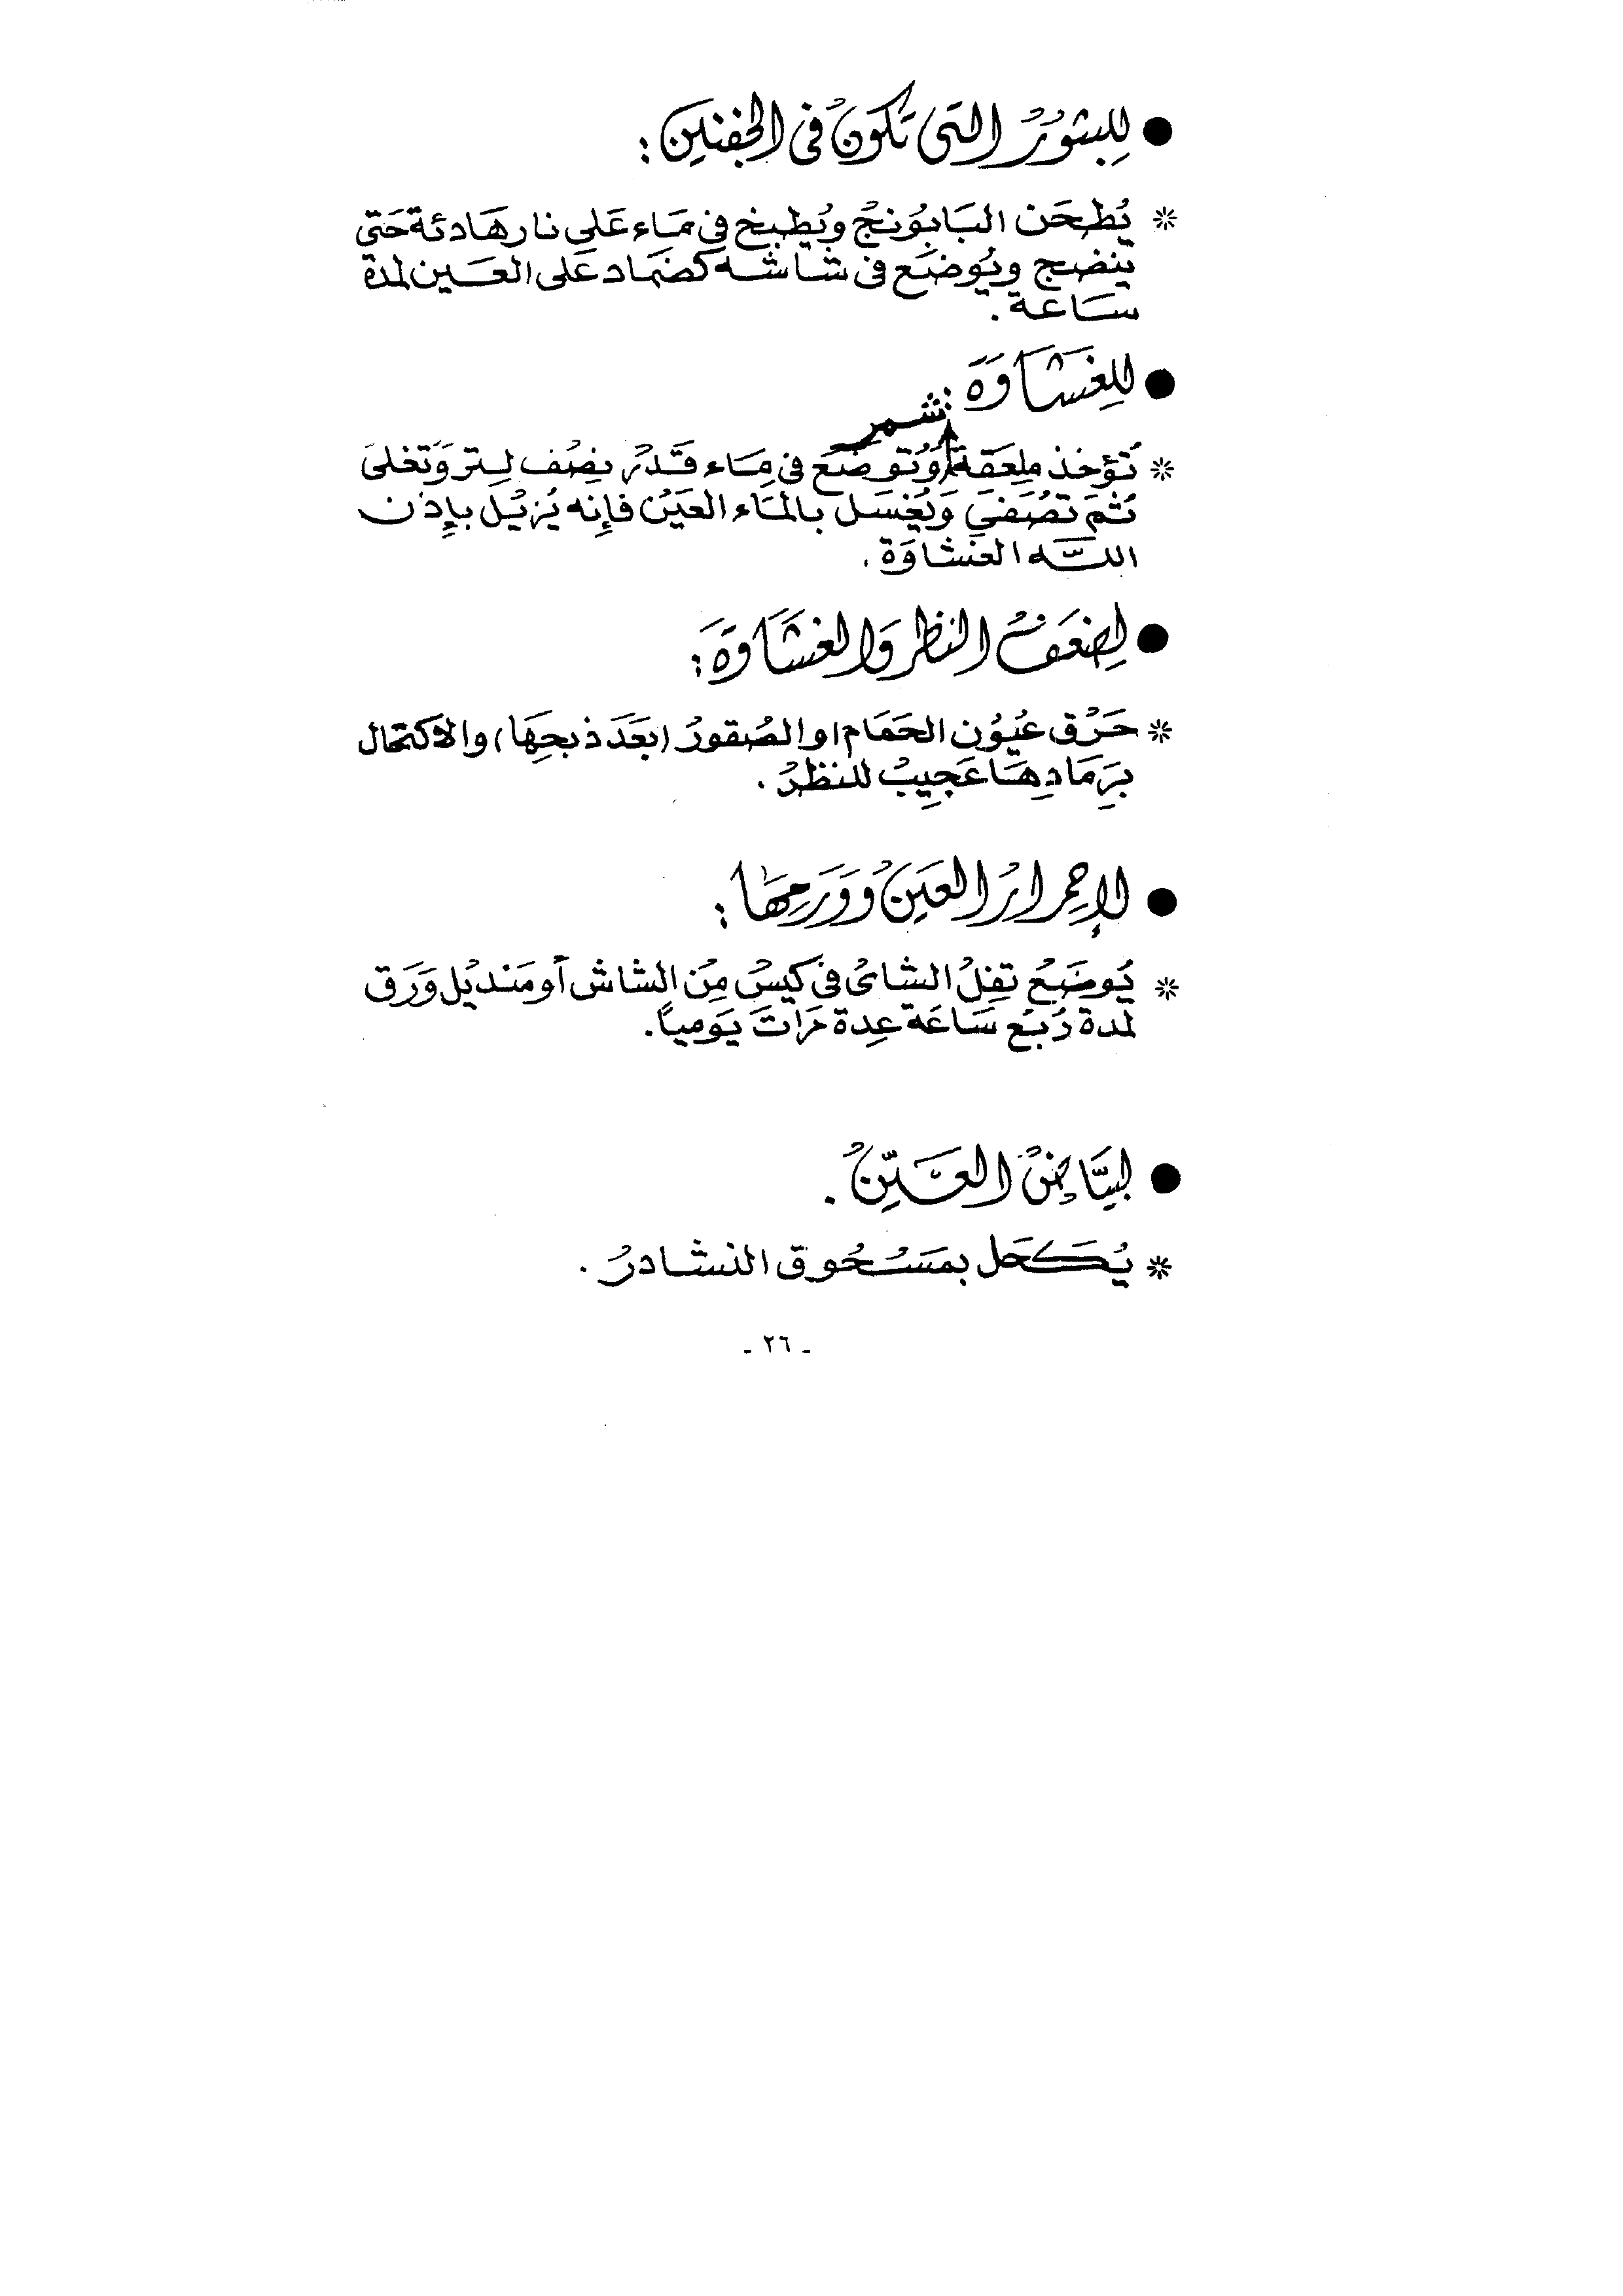 ● للبثور التى تكون فى الجفنين :
* يُطحَن البَابُونج ويُطبخ فى مَاء عَلى نار هَادئة حَتى
ينضج ويُوضَع فى شاشه كضمَاد عَلى العَـين لمدة
سَـاعـة .
● للغِشَاوَة :
شـمر
* تُؤخذ ملعَقة وُتوضَعَ فى مَاء قَدْر نِصُف لِـتر وَتغلىَ
ثُمَ تصُفىَ وَيُغسَل بالمَاء العَينُ فإنه يُزيُل بإِذن
اللـّه الغشاوَة .
● لِضعَف النظر وَالغشَاوَة :
* حَرْق عُيوُن الحَمَام او الصُقورُ (بعَدَ ذبحِهَا) والاكتحال
برَِمَادِهَا عَجِيبُ للنظرُ .
● لإحمِرارُ العَينُ وَوَرمِهَا :
* يُوضَعُ تفِلُ الشاىُ فى كيسُ مِنُ الشاش أو مَنديُل وَرَق
لمدة رُبُع سَاعَة عِدة مَراتَ يَومياً .
● لبيَاضُ العَـيّنُ .
* يُـكـحَل بمَسـُحُوق النشـادرُ .
- ٢٦ -